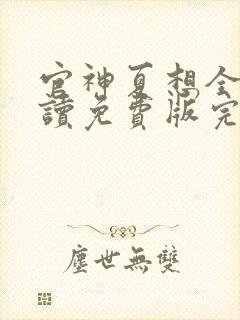 官神夏想全
讀免費版完
塵世無雙